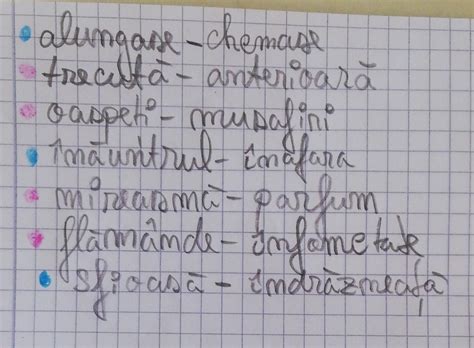 alungase - chemase
trecută - anterioară
oaspeți - musafiri
înăuntrul - înafara
mireasmă - parfum
flămânde - înfometate
sfioasă - îndrăzneață